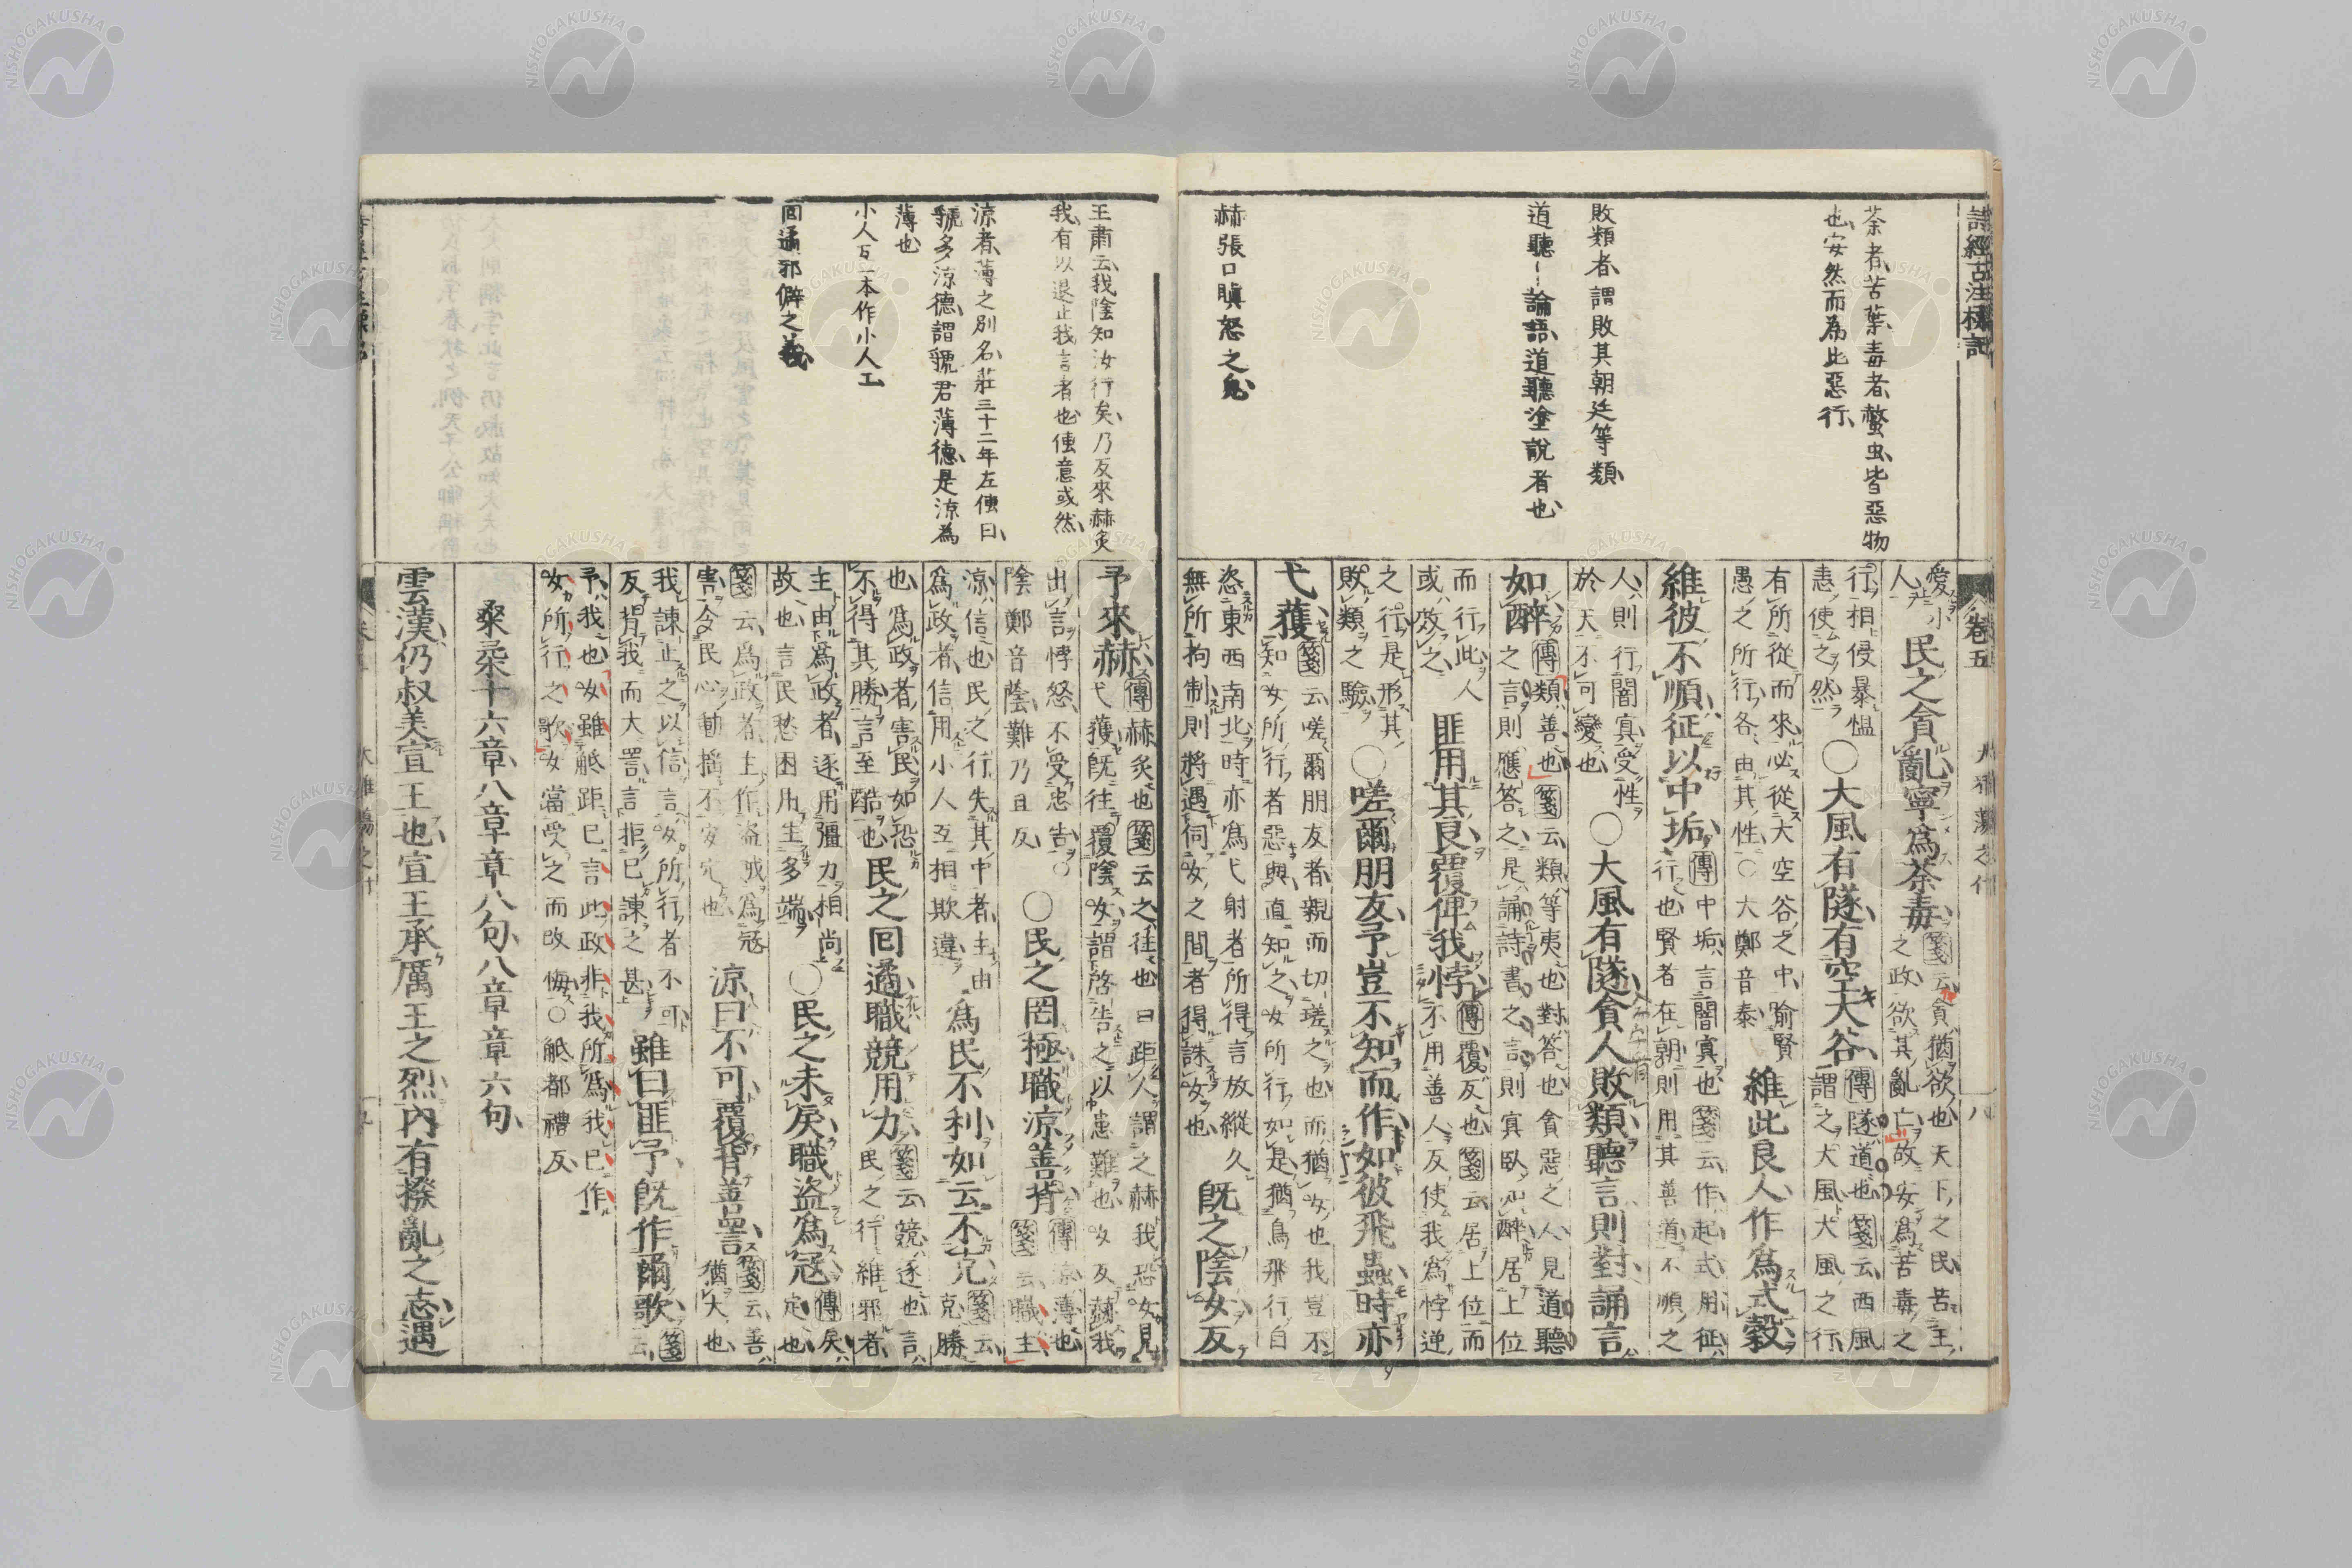 詩經古注標記
荼者苦葉毒者螫虫皆惡物
也安然而為此惡行
敗類者謂敗其朝廷等類
道聽〡論語道聽塗說者也
赫張口瞋怒之皃
卷五
大雅蕩之什
八
愛小
人
民之貪亂寧爲荼毒
箋云貪猶欲也天下之民苦王
之政欲其亂亡故安爲苦毒之
行相侵暴慍
恚使之然
○大風有隧有空大谷
傳隧道也箋云西風
謂之大風大風之行
有所從而來必從大空谷之中喻賢
愚之所行各由其性○大鄭音泰
維此良人作爲式穀
維彼不順征以中垢
傳中垢言闇冥也箋云作起式用征
行也賢者在朝則用其善道不順之
人則行闇冥受性
於天不可變也
○大風有隧貪人敗類聽言則對誦言
如醉
傳類善也箋云類等夷也對答也貪惡之人見道聽
之言則應答之是誦詩書之言則冥臥如醉居上位
而行此人
或效之
匪用其良覆俾我悖
傳覆反也箋云居上位而
不用善人反使我爲悖逆
之行是形其
敗類之驗
○嗟爾朋友予豈不知而作如彼飛蟲時亦
弋獲
箋云嗟爾朋友者親而切瑳之也而猶女也我豈不
知女所行者惡與直知之女所行如是猶鳥飛行自
恣東西南北時亦爲弋射者所得言放縱久
無所拘制則將遇伺女之間者得誅女也
既之陰女反
王肅云我陰知汝行矣乃反來赫炙
我有以退止我言者也傳意或然
涼者薄之別名莊三十二年左傳曰
虢多涼德謂虢君薄德是涼為
薄也
小人互一本作小人工
回遹邪僻之義
予來赫
傳赫炙也箋云之往也口距人謂之赫我恐女見
弋獲既往覆陰女謂啓告之以患難也女反赫我
出言悖怒不受忠告○
陰鄭音蔭難乃且反
○民之罔極職涼善背
傳涼薄也
箋云職主
涼信也民之行失其中者主由
爲政者信用小人互相欺違
爲民不利如云不克
箋云
克勝
也爲政者害民如恐
不得其勝言至酷也
民之回遹職競用力
箋云競逐也言
民之行維邪者
主由爲政者逐用彊力相尚
故也言民愁困用生多端
○民之未戾職盜爲寇
傳戾
定也
箋云爲政者主作盜賊爲寇
害令民心動搖不安定也
涼曰不可覆背善詈
箋云善
猶大也
我諫止之以信言女所行者不可
反背我而大詈言拒已諫之甚
雖曰匪予既作爾歌
箋
云
予我也女雖觝距已言此政非我所爲我已作
女所行之歌女當受之而改悔○觝都禮反
桑柔十六章八章章八句八章章六句
雲漢仍叔美宣王也宣王承厲王之烈內有撥亂之志遇
NISHOGAKUSHA